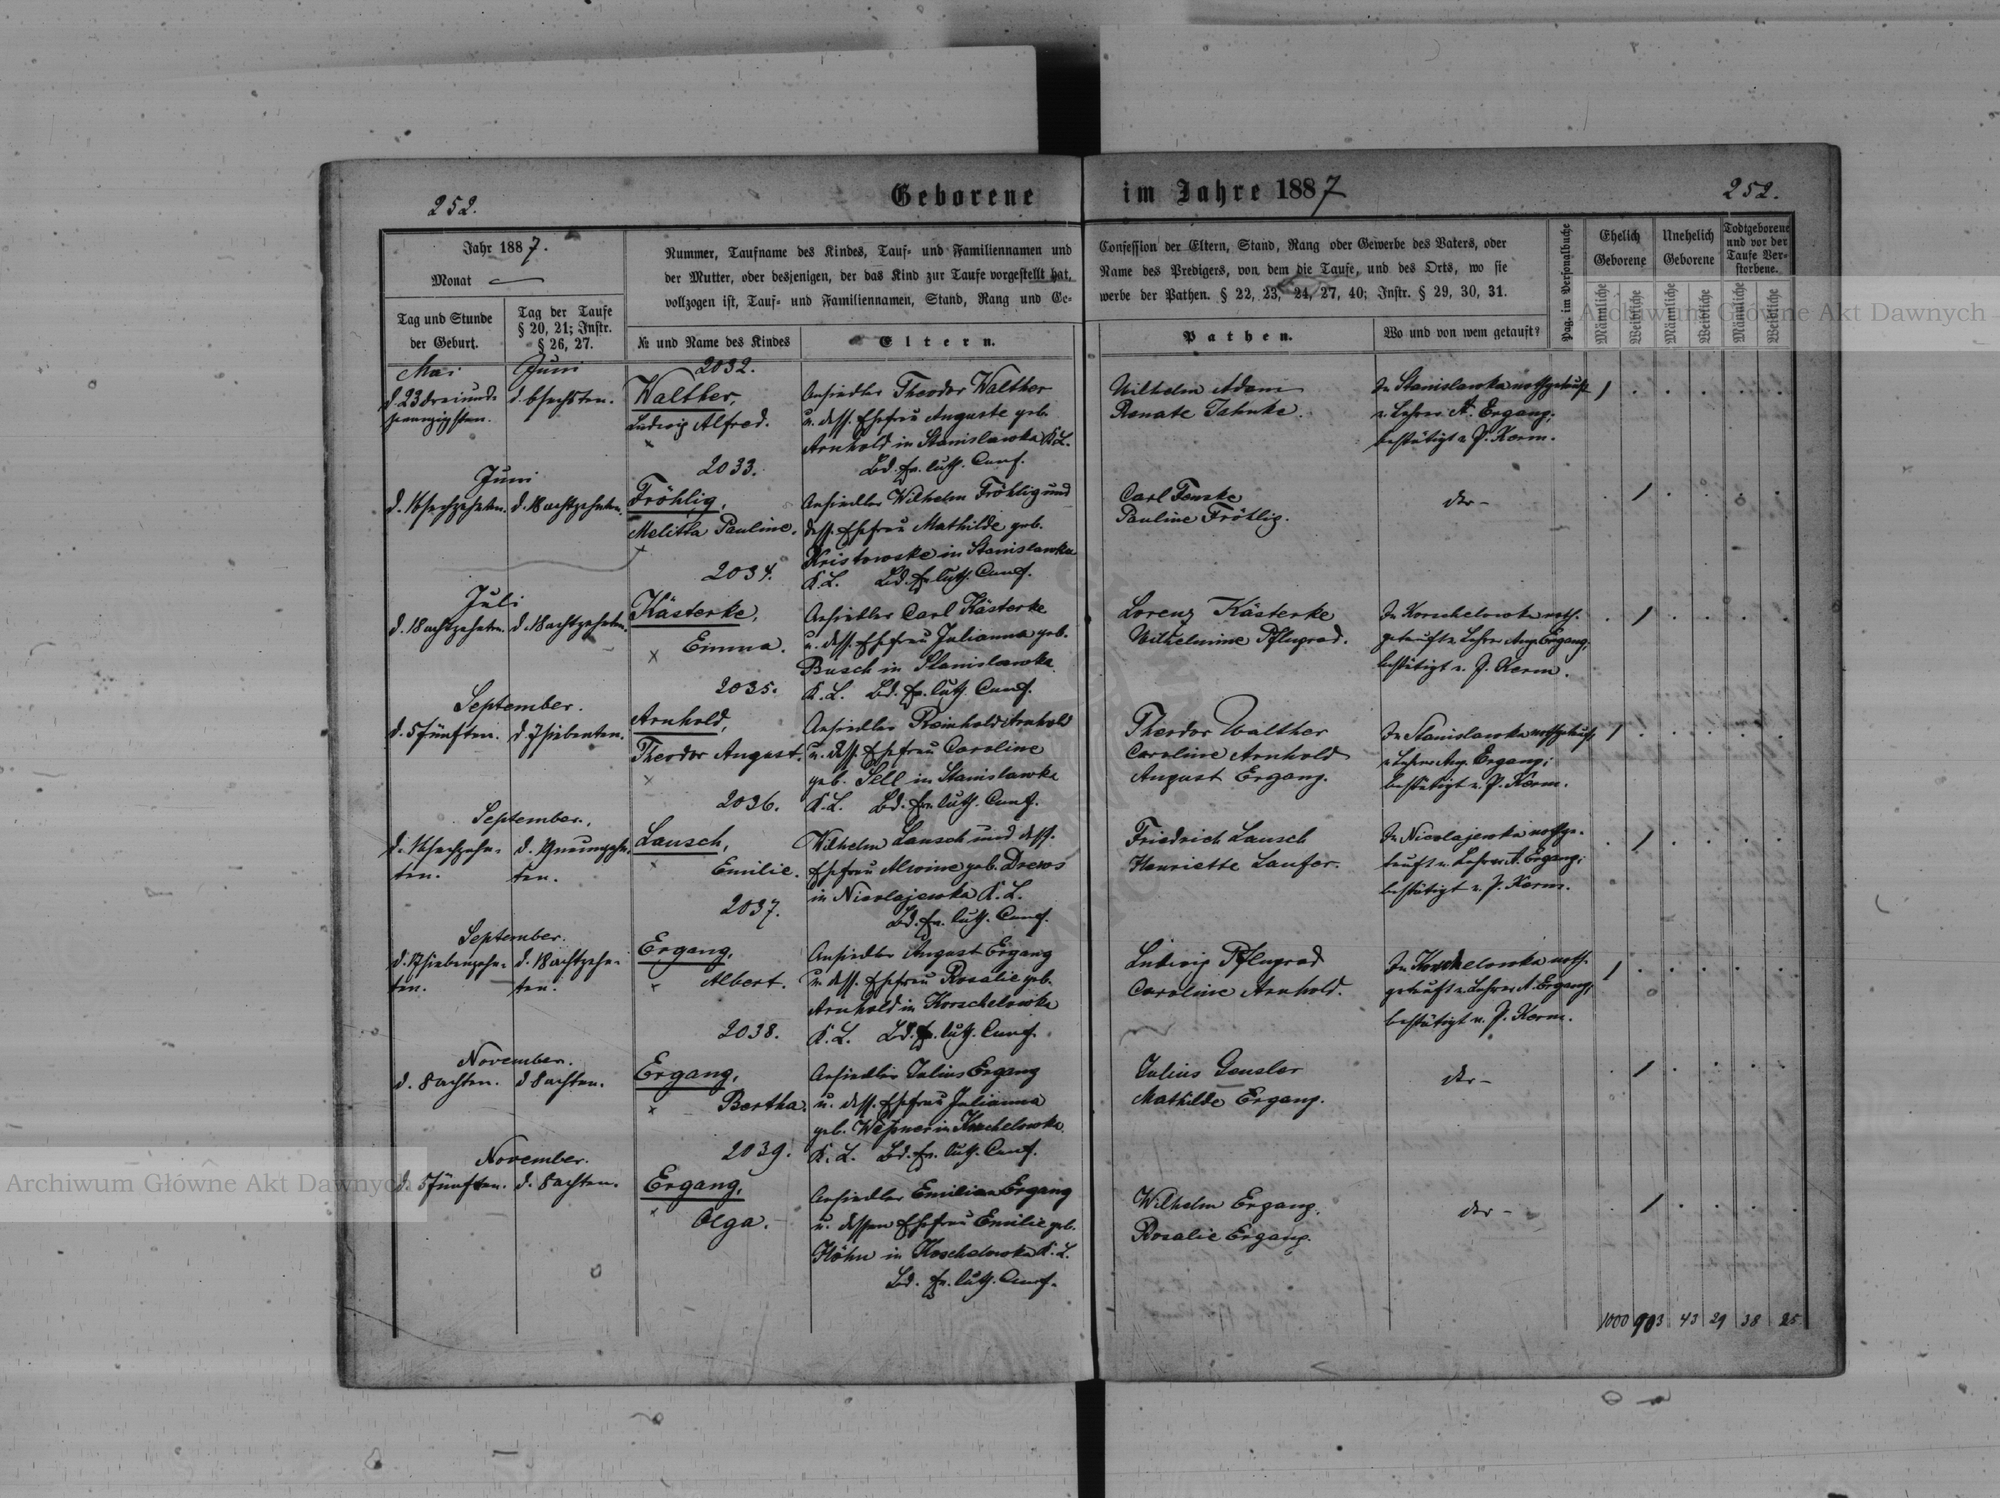 252.
Geborene im Jahre 1887
252.
Jahr 1887.
Monat
Tag und Stunde
der Geburt.
Tag der Taufe
§ 20, 21; Instr.
§ 26, 27.
Nummer, Taufname des Kindes, Tauf- und Familiennamen und
der Mutter, oder desjenigen, der das Kind zur Taufe vorgestellt hat,
vollzogen ist, Tauf- und Familiennamen, Stand, Rang und Ge-
№ und Name des Kindes
Eltern.
Confession der Eltern, Stand, Rang oder Gewerbe des Vaters, oder
Name des Predigers, von dem die Taufe, und des Orts, wo sie
werbe der Pathen. § 22, 23, 24, 27, 40; Instr. § 29, 30, 31.
Pathen.
Wo und von wem getauft?
Pag. im Personalbuche
Ehelich
Geborene
Unehelich
Geborene
Todtgeborene
und vor der
Taufe Ver-
storbene.
Männliche
Weibliche
Männliche
Weibliche
Männliche
Weibliche
Mai
d. 23 dreiund-
zwanzigsten.
Juni
d. 6 sechsten.
2032.
Walther,
Ludwig Alfred.
Ansiedler Theodor Walther
u. dess. Ehefrau Auguste geb.
Arnhold in Stanislawka K.L.
Bd. ev. luth. Conf.
Wilhelm Adam
Renate Jahnke.
In Stanislawka nothgetauft
v. Lehrer A. Ergang;
bestätigt v. P. Kerm.
Juni
d. 16 sechzehnten.
d. 18 achtzehnten.
2033.
Fröhlig,
Melitta Pauline.
Ansiedler Wilhelm Fröhlig und
dess. Ehefrau Mathilde geb.
Kristowske in Stanislawka
K.L. Bd. ev. luth. Conf.
Carl Fenske
Pauline Fröhlig.
dto-
Juli
d. 18 achtzehnten.
d. 18 achtzehnten.
2034.
Kästerke,
Emma.
Ansiedler Carl Kästerke
u. dess. Ehefrau Julianna geb.
Busch in Stanislawka
K.L. Bd. ev. luth. Conf.
Lorenz Kästerke
Wilhelmine Pflugrad.
In Korschelowka noth-
getauft v. Lehrer Aug. Ergang;
bestätigt v. P. Kerm.
September.
d. 5 fünften.
d. 7 siebenten.
2035.
Arnhold,
Theodor August.
Ansiedler Reinhold Arnhold
u. dess. Ehefrau Caroline
geb. Sell in Stanislawka
K.L. Bd. ev. luth. Conf.
Theodor Walther
Caroline Arnhold
August Ergang.
In Stanislawka nothgetauft
v. Lehrer Aug. Ergang;
bestätigt v. P. Kerm.
September.
d. 16 sechzehn-
ten.
d. 19 neunzehn-
ten.
2036.
Lausch,
Emilie.
Wilhelm Lausch und dess.
Ehefrau Alwine geb. Drews
in Nicolajewka K.L.
Bd. ev. luth. Conf.
Friedrich Lausch
Henriette Laufer.
In Nicolajewka nothge-
tauft v. Lehrer A. Ergang;
bestätigt v. P. Kerm.
September.
d. 17 siebenzehn-
ten.
d. 18 achtzehn-
ten.
2037.
Ergang,
Albert.
Ansiedler August Ergang
u. dess. Ehefrau Rosalie geb.
Arnhold in Korschelowka
K.L. Bd. ev. luth. Conf.
Ludwig Pflugrad
Caroline Arnhold.
In Korschelowka noth-
getauft v. Lehrer A. Ergang;
bestätigt v. P. Kerm.
November.
d. 8 achten.
d 8 achten.
2038.
Ergang,
Bertha.
Ansiedler Julius Ergang
u. dess. Ehefrau Julianna
geb. in Korschelowka
K.L. Bd. ev. luth. Conf.
Julius Gensler
Mathilde Ergang.
dto-
November.
d. 5 fünften.
d. 8 achten.
2039.
Ergang,
Olga.
Ansiedler Emilian Ergang
u. dessen Ehefrau Emilie geb.
Höhn in Koschelowka K.L.
Bd. ev. luth. Conf.
Wilhelm Ergang.
Rosalie Ergang.
dto-
1000 903 43 29 38 25
Archiwum Główne Akt Dawnych
Archiwum Główne Akt Dawnych